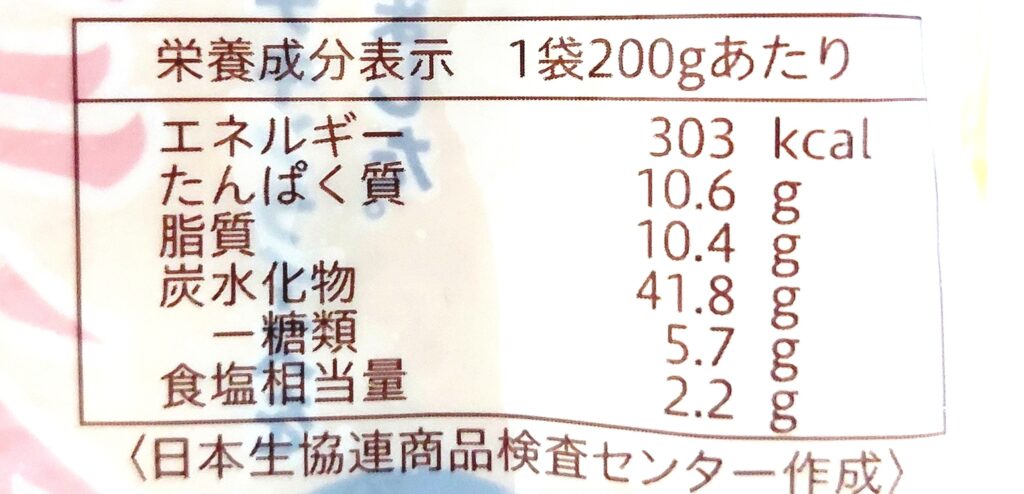 栄養成分表示 1袋200gあたり
エネルギー 303 kcal
たんぱく質 10.6 g
脂質 10.4 g
炭水化物 41.8 g
－糖類 5.7 g
食塩相当量 2.2 g
〈日本生協連商品検査センター作成〉